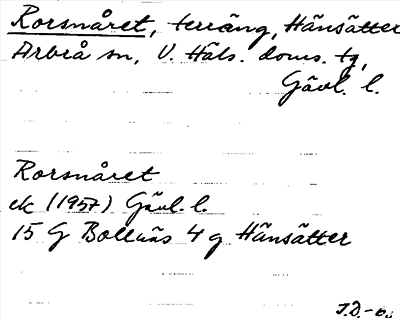 Rorsnåret, terräng, Hänsätter
Arbrå sn, V. Häls. doms. tg,
Gävl. l.
Rorsnåret
ek (1957) Gävl. l.
15 G Bollnäs 4 g Hänsätter
J.D.